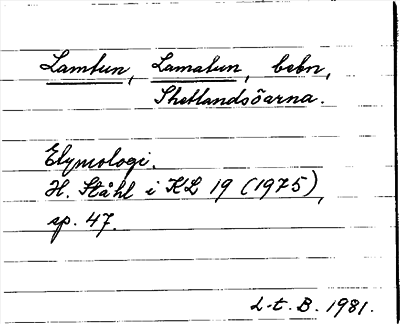 Lamtun, Lamatun, bebn,
Shetlandsöarna.
Etymologi.
H. Ståhl i KL 19 (1975),
sp. 47.
L-t. B. 1981.